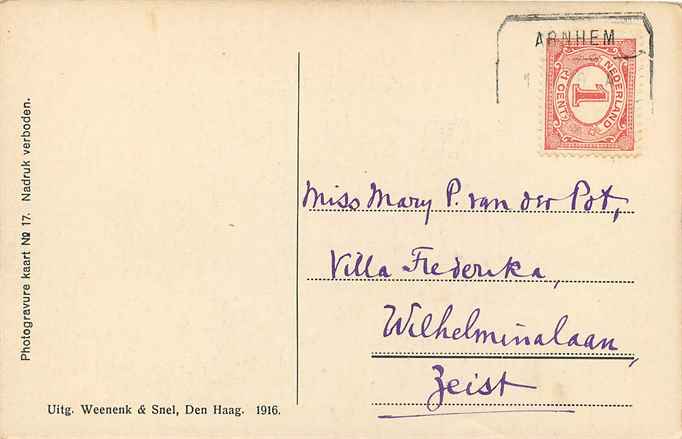 Photogravure kaart № 17. Nadruk verboden.
Uitg. Weenenk & Snel, Den Haag. 1916.
ARNHEM
NEDERLAND
1
1 CENT
Miss Mary P. van der Pot,
Villa Frederika,
Wilhelminalaan,
Zeist